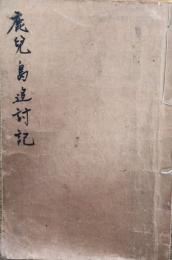 鹿兒島追討記